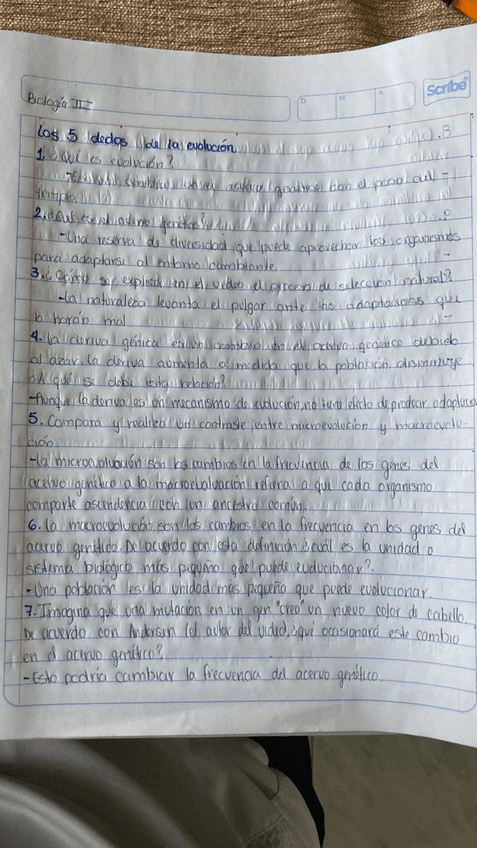 Scribe
Biología III
D M A
Los 5 dedos de la evolución
1. ¿Qué es evolución?
-Es un cambio acervo genético con el paso del
tiempo.
2. ¿Qué es el acervo genético?
-Una reserva de diversidad que puede aprovechar los organismos
para adaptarse al entorno cambiante.
3. ¿Cómo se explica en el video el proceso de selección natural?
-La naturaleza levanta el pulgar ante las adaptaciones que
lo harán mal
4. La deriva génica es un cambio en el acervo genético debido
al azar. La deriva aumenta a medida que la población disminuye
¿A qué se debe esta relación?
-Aunque la deriva es un mecanismo de evolución, no tiene efecto de producir adaptacio
5. Compara y realiza un contraste entre microevolución y macroevolu-
ción.
-La microevolución son los cambios en la frecuencia de los genes del
acervo genético a la macroevaluación refiena a que cada organismo
comparte ascendencia con un ancestro común.
6. La microevolución son los cambios en la frecuencia en los genes del
acervo genético. De acuerdo con esta definición ¿cuál es la unidad o
sistema biológico más pequeño que puede evolucionar?
-Una población es la unidad más pequeña que puede evolucionar.
7. Imagina que una mutación en un gen "crea" un nuevo color de cabello.
De acuerdo con Anderson (el autor del video), ¿qué ocasionará este cambio
en el acervo genético?
-Esto podría cambiar la frecuencia del acervo genético.